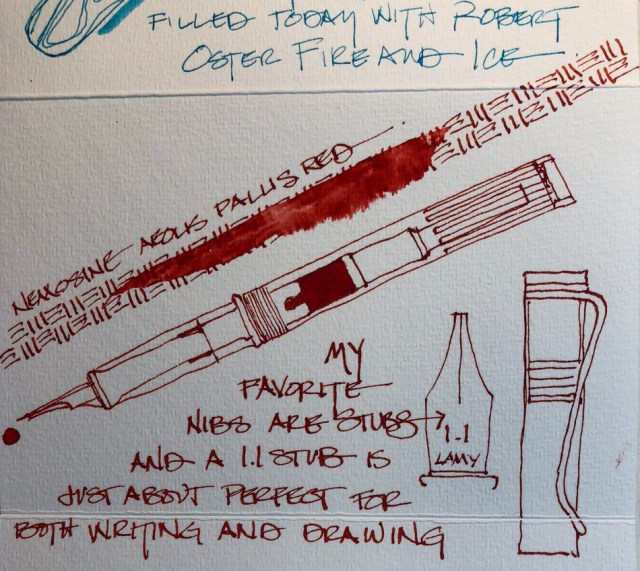 FILLED TODAY WITH ROBERT
OSTER FIRE AND ICE
NEMOSINE AEOLIS PALUS RED
MY
FAVORITE
NIBS ARE STUBS
AND A 1.1 STUB IS
JUST ABOUT PERFECT FOR
BOTH WRITING AND DRAWING
1.1
LAMY